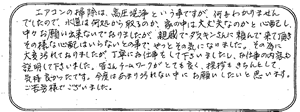 エアコンの掃除は、高圧洗浄という事ですが、何もわかりません
でしたので、水道は何処から取るのか、家の中は大丈夫なのかと心配し
中々お願い出来ないでおりましたが、親戚でダスキンさんに頼んで来て頂き
その様な心配はいらないとの事で、やっとその気になりました。その為に
大変汚れておりましたが、丁寧にお仕事をして下さいましたし、お仕事の内容も
説明して下さいました。皆さんチームワークがとても良く、挨拶もきちんとして
気持良かったです。今度はあまり汚れない中にお願いしたいと思います。
ご苦労様でございました。